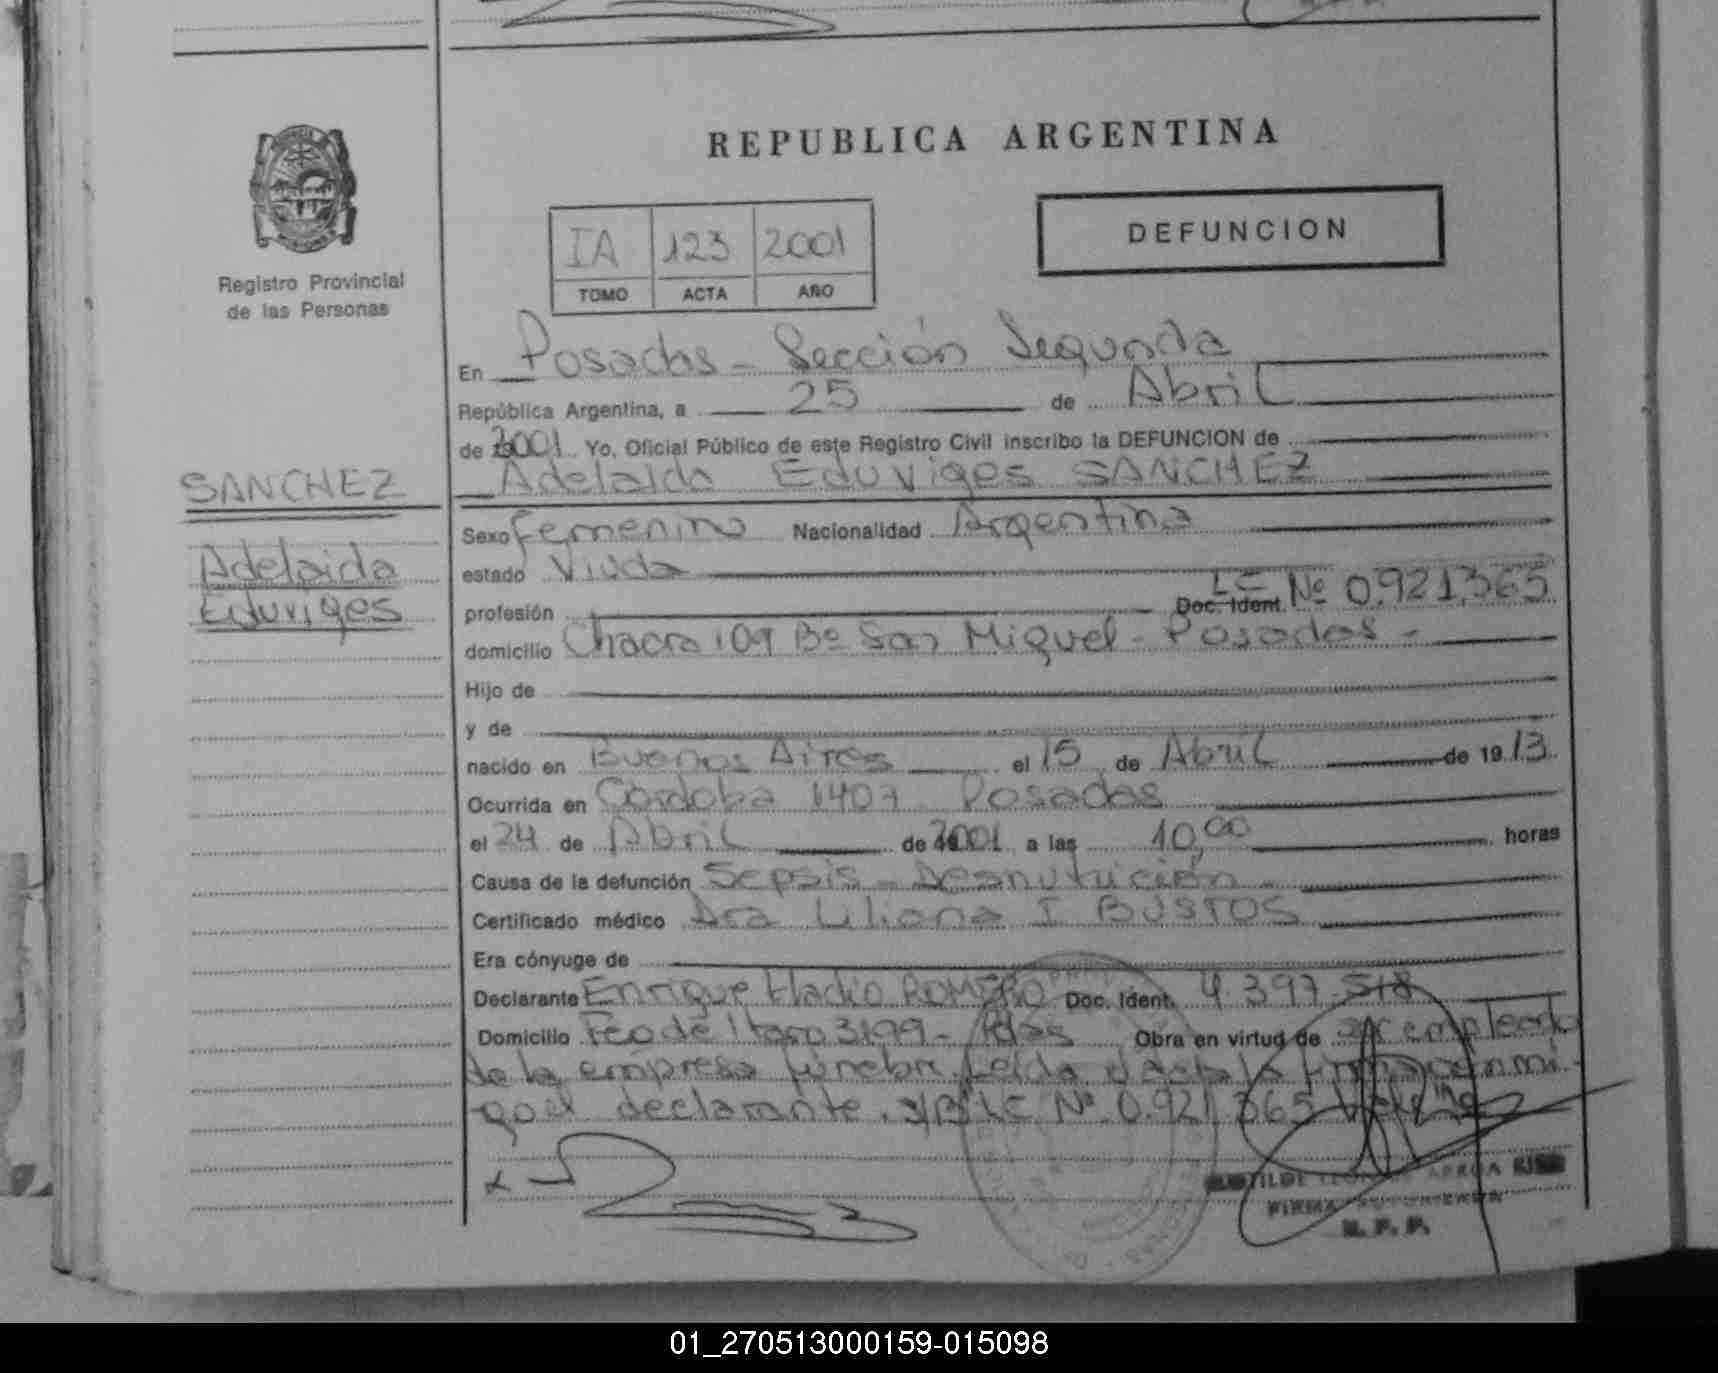 REPUBLICA ARGENTINA
IA 123 2001
TOMO ACTA AÑO
DEFUNCION
Registro Provincial
de las Personas
En Posadas - Sección Segunda
República Argentina, a 25 de Abril
de 2001. Yo, Oficial Público de este Registro Civil inscribo la DEFUNCION de
Adelaida Eduviges SANCHEZ
SANCHEZ
Adelaida
Eduviges
Sexo femenino Nacionalidad Argentina
estado Viuda
profesión Doc. Ident. Nº 0.921.365
domicilio Chacra 109 Bº San Miguel - Posadas -
Hijo de
y de
nacido en Buenos Aires el 15 de Abril de 1913
Ocurrida en Córdoba 1407 Posadas
el 24 de Abril de 2001 a las 10,00 horas
Causa de la defunción Sepsis - Desnutrición
Certificado médico Dra Liliana I BUSTOS
Era cónyuge de
Declarante Enrique Eladio ROMERO Doc. Ident. 4.397.518
Domicilio 3199 - Pdas Obra en virtud de ser empleado
de la empresa fúnebre. Leída el Acta la firma conmi-
go el declarante. S/B LC Nº 0.921.365 Vale
FIRMA AUTORIZADA
R. P. P.
01_270513000159-015098